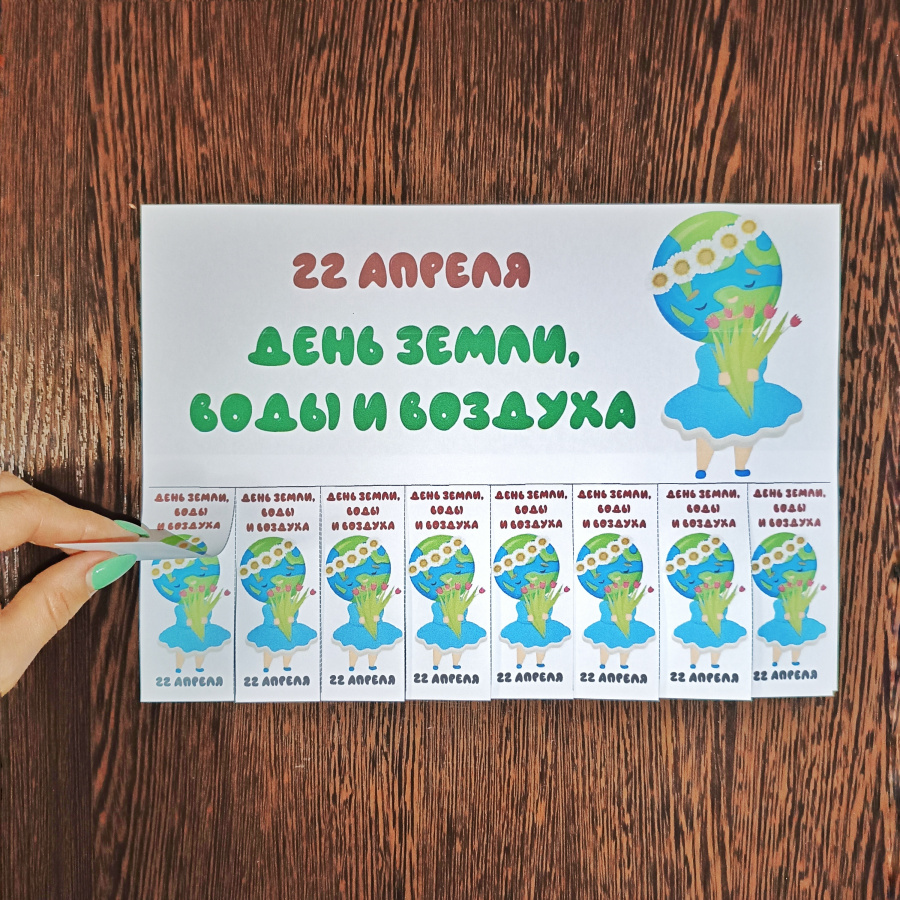 22 АПРЕЛЯ
ДЕНЬ ЗЕМЛИ,
ВОДЫ И ВОЗДУХА
ДЕНЬ ЗЕМЛИ,
ВОДЫ
И ВОЗДУХА
22 АПРЕЛЯ
ДЕНЬ ЗЕМЛИ,
ВОДЫ
И ВОЗДУХА
22 АПРЕЛЯ
ДЕНЬ ЗЕМЛИ,
ВОДЫ
И ВОЗДУХА
22 АПРЕЛЯ
ДЕНЬ ЗЕМЛИ,
ВОДЫ
И ВОЗДУХА
22 АПРЕЛЯ
ДЕНЬ ЗЕМЛИ,
ВОДЫ
И ВОЗДУХА
22 АПРЕЛЯ
ДЕНЬ ЗЕМЛИ,
ВОДЫ
И ВОЗДУХА
22 АПРЕЛЯ
ДЕНЬ ЗЕМЛИ,
ВОДЫ
И ВОЗДУХА
22 АПРЕЛЯ
ДЕНЬ ЗЕМЛИ,
ВОДЫ
И ВОЗДУХА
22 АПРЕЛЯ